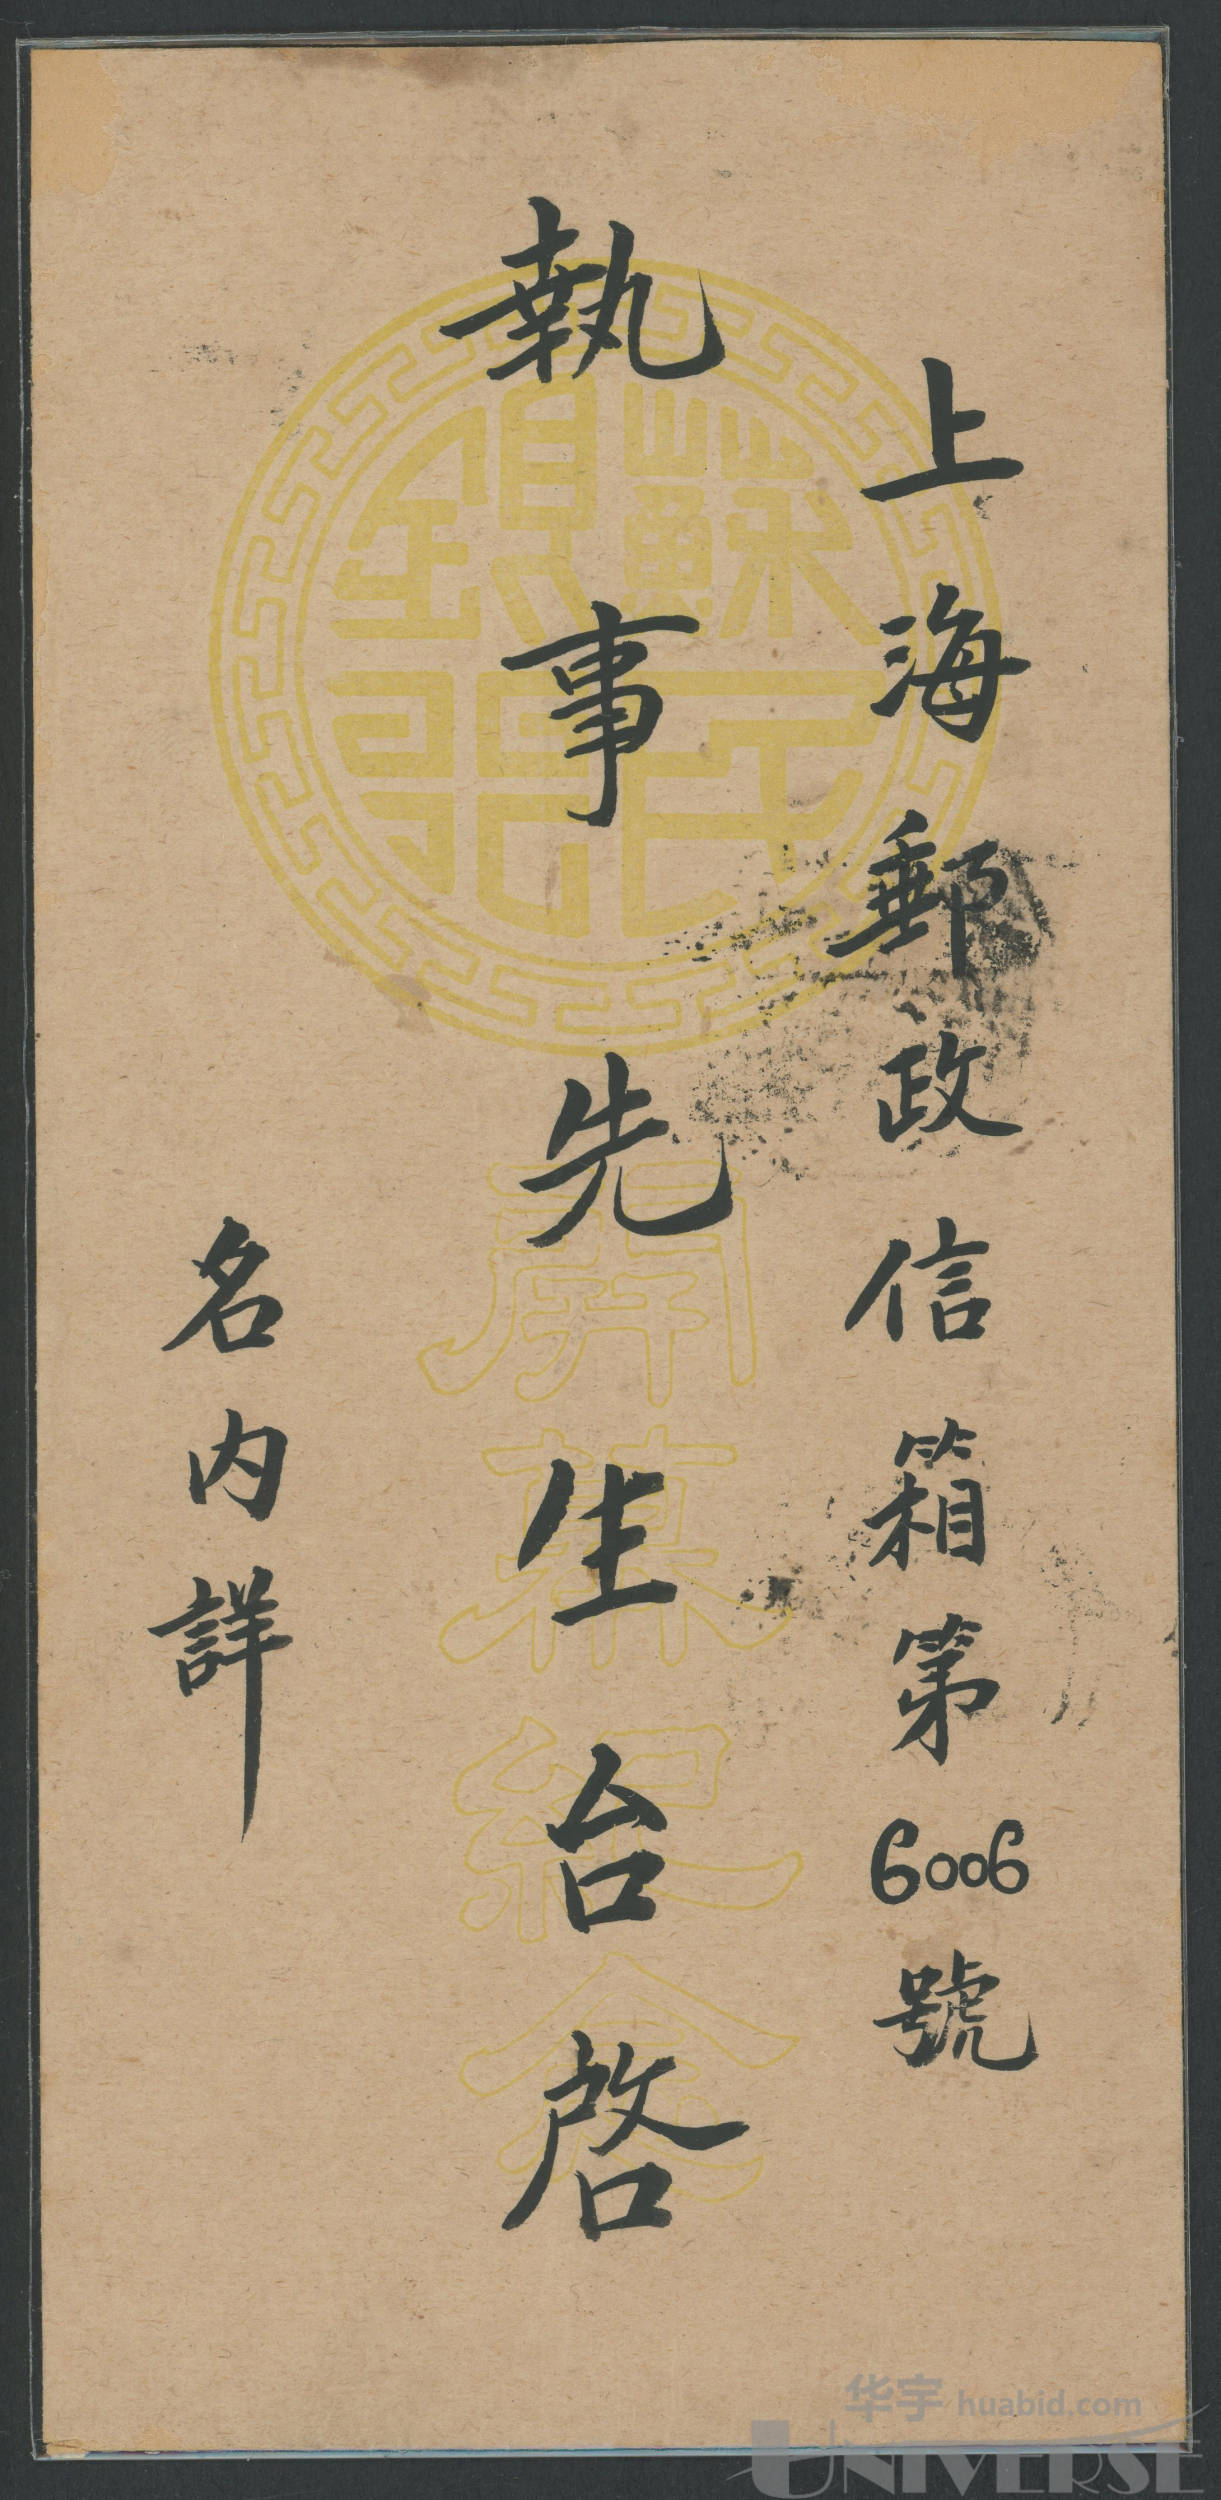 上海郵政信箱第6006號
執事先生台啓
名内詳
蘇民
銀行
開幕紀念
华宇 huabid.com
UNIVERSE